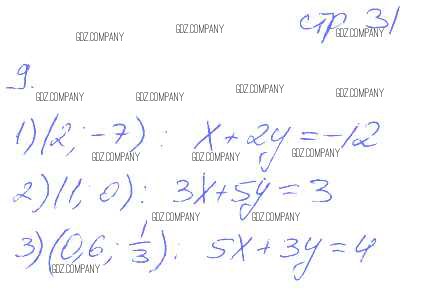 стр 31
GDZ.COMPANY GDZ.COMPANY GDZ.COMPANY
9.
GDZ.COMPANY GDZ.COMPANY GDZ.COMPANY GDZ.COMPANY
1) (2; -7): x + 2y = -12
GDZ.COMPANY GDZ.COMPANY GDZ.COMPANY
2) (1; 0): 3x + 5y = 3
GDZ.COMPANY GDZ.COMPANY
3) (0,6; 1/3): 5x + 3y = 4
GDZ.COMPANY